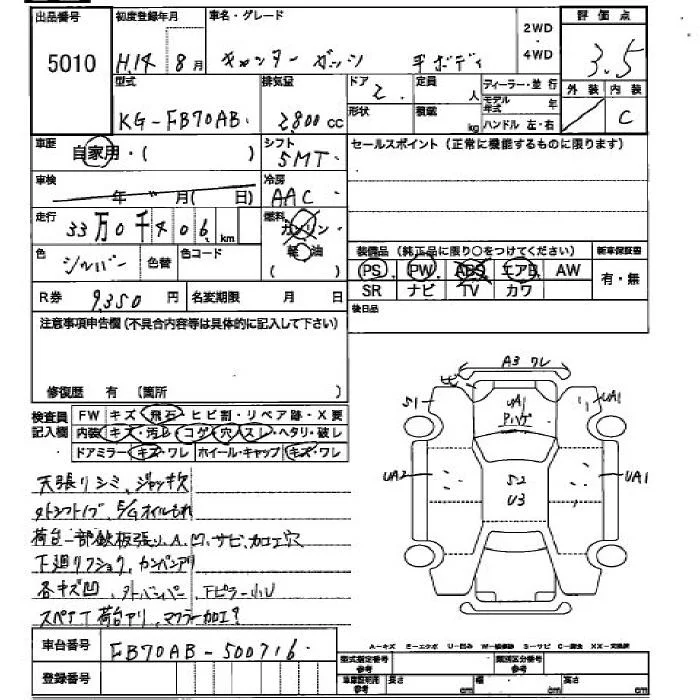 出品番号 初度登録年月 車名・グレード 2WD 評価点
5010 H.14 8月 キャンター ガッツ 平ボディ 4WD 3.5
型式 排気量 ドア 定員 ディーラー・並行 外装 内装
KG-FB70AB 2800cc 2 人 モデル年式 年 C
形状 積載 kg ハンドル 左・右
車歴 シフト セールスポイント (正常に機能するものに限ります)
自家用・( ) 5MT
車検 冷房
年 月( 日) AAC
走行 燃料
33万0千406km ガソリン
軽油
( )
色 シルバー 色替 色コード
装備品 (純正品に限り○をつけてください) 新車保証書
PS PW ABS エアB AW 有・無
SR ナビ TV カワ
R券 9,350円 名変期限 月 日
後日品
注意事項申告欄 (不具合内容等は具体的に記入して下さい)
修復歴 有 (箇所 )
検査員記入欄 FW キズ・飛石・ヒビ割・リペア跡・X要
内装 キズ・汚れ・コゲ・穴・スレ・ヘタリ・破レ
ドアミラー キズ・ワレ ホイール・キャップ キズ・ワレ
A3 ワレ
S1 UA1 UA1
Pハゲ
UA2 S2 UA1
U3
天張りシミ、ジャッキ欠
外シフトノブ、E/Gオイルもれ
荷台一部鉄板張り、A、凹、サビ、加工穴
下廻りフショク、カンバンアリ
各キズ凹、外バンパー、下ピラー小U
スペアT荷台アリ、マフラー加工?
車台番号 FB70AB-500716
登録番号
A-キズ E-エクボ U-凹み W-補修跡 S-サビ C-腐食 XX-交換済
型式指定番号 類別区分番号
車庫証明用参考 長さ cm 幅 cm 高さ cm